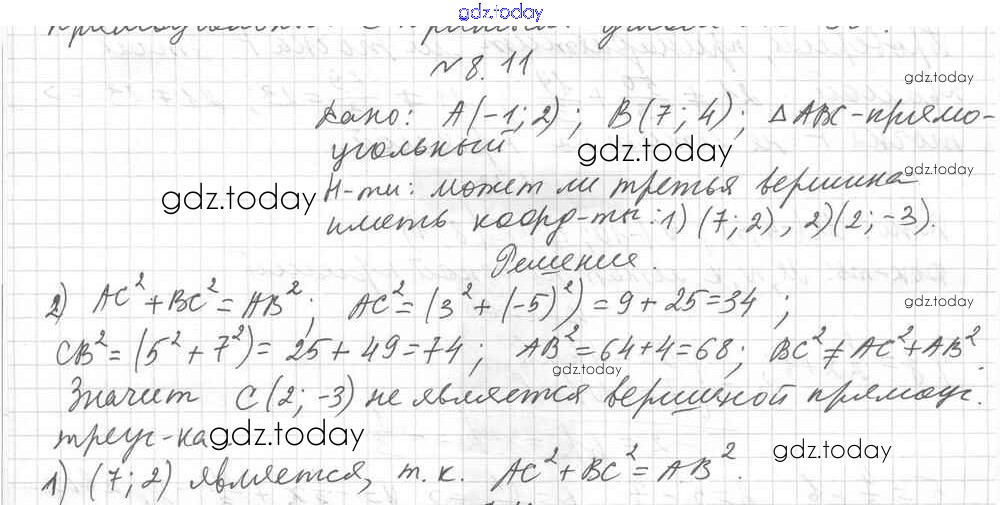 gdz.today
№ 8.11
gdz.today
Дано: A(-1; 2); B(7; 4); △ABC - прямо-
угольный gdz.today
gdz.today
gdz.today
Н-ти: может ли третья вершина
иметь коорд-ты: 1) (7; 2), 2) (2; -3).
Решение.
2) AC² + BC² = AB²; AC² = (3² + (-5)²) = 9 + 25 = 34; gdz.today
CB² = (5² + 7²) = 25 + 49 = 74; AB² = 64 + 4 = 68; BC² ≠ AC² + AB².
gdz.today
Значит C(2; -3) не является вершиной прямоуг.
треуг-ка gdz.today
gdz.today
1) (7; 2) является, т.к. AC² + BC² = AB².